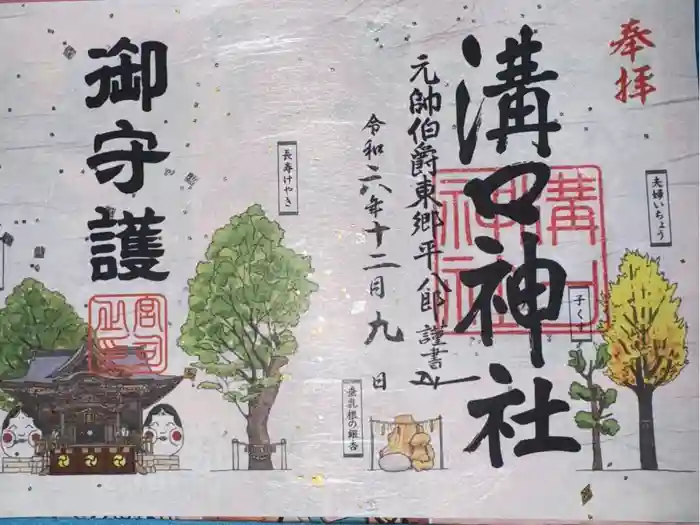 奉拝
夫婦いちょう
溝口神社
溝口神社
子く
元帥伯爵東郷平八郎謹書
令和六年十二月九日
垂乳根の銀杏
長寿けやき
御守護
宮司之印